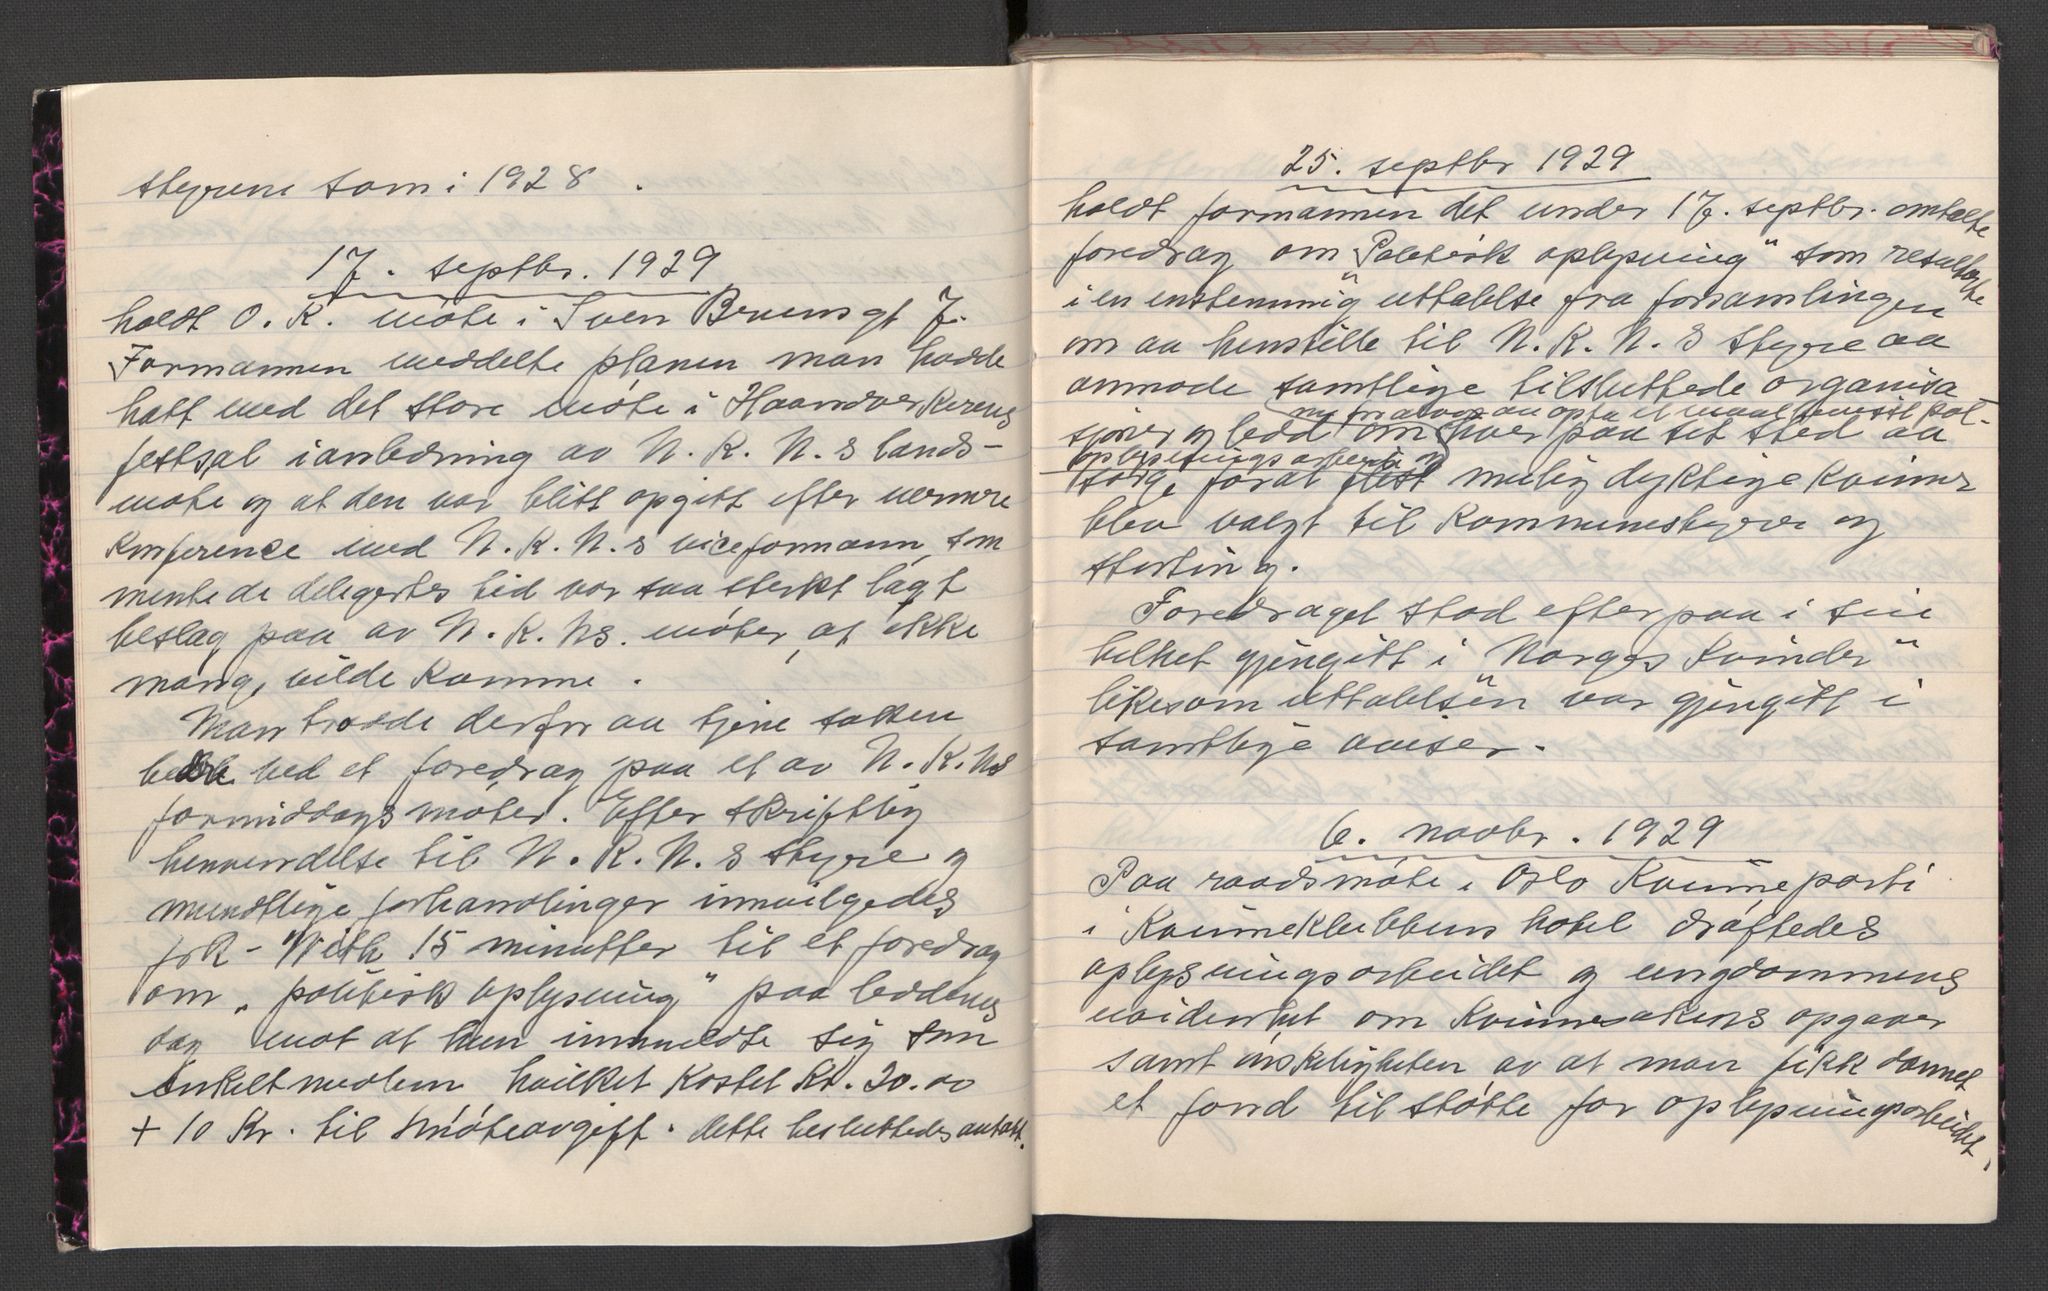 styrene som i 1928.
17. septbr. 1929
holdt O. K. møte i Sven Brunsgt 7.
Formannen meddelte planen man hadde
hatt med det store møte i Haandverkerens
festsal i anledning av N. K. N.s lands-
møte og at den var blitt opgitt efter nærmere
konference med N. K. N.s viceformann, som
mente de delegertes tid var saa sterkt lagt
beslag paa av N. K. Ns. møter, at ikke
mange vilde komme.
Man trodde derfor aa tjene saken
bedre ved et foredrag paa et av N. K. Ns
formiddagsmøter. Efter skriftlig
henvendelse til N. K. N.s styre og
mundtlige forhandlinger innvilgedes
frk. With 15 minutter til et foredrag
om „politisk oplysning" paa leddenes
dag mot at hun innmeldte sig som
enkeltmedlem hvilket kostet Kr. 20.00
+ 10 Kr. til møteavgift. Dette besluttedes antatt.
25. septbr 1929
holdt formannen det under 17. septbr. omtalte
foredrag om „Politisk oplysning" som resulterte
i en enstemmig uttalelse fra forsamlingen
om aa henstille til N. K. N.s styre aa
anmode samtlige tilsluttede organisa-
sjoner og ledd om aa opta et maalbevisst pol.
oplysningsarbeide og hver paa sit sted aa
sørge for at flest mulig dyktige kvinner
blev valgt til Kommunestyrer og
storting.
Foredraget stod efterpaa i sin
helhet gjengitt i „Norges Kvinder"
likesom uttalelsen var gjengitt i
samtlige aviser.
6. novbr. 1929
Paa raadsmøte i Oslo Kvinneparti
i Kvinneklubbens hotel drøftedes
oplysningsarbeidet og ungdommens
uvidenhet om Kvinnesakens opgaver
samt ønskeligheten av at man fikk dannet
et fond til støtte for oplysningsarbeidet,